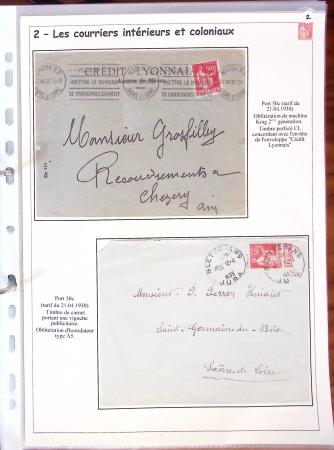 2
2 - Les courriers intérieurs et coloniaux
CRÉDIT LYONNAIS
METTRE LE NUMERO
D'ARRONDISSEMENT
Monsieur Grosfilley
Recouvrements a
Chezery
Ain
Port 50c (tarif du
21.04.1930)
Oblitération de machine
Krag 2ème génération.
Timbre perforé CL
concordant avec l'en-tête
de l'enveloppe "Crédit
Lyonnais"
Port 50c
(tarif du 21.04.1930)
Timbre de carnet
portant une vignette
publicitaire.
Oblitération d'horodateur
type A5.
BLETTERANS
1935
JURA
Monsieur P. Perron
Saint-Germain-du-Bois
Saône-et-Loire